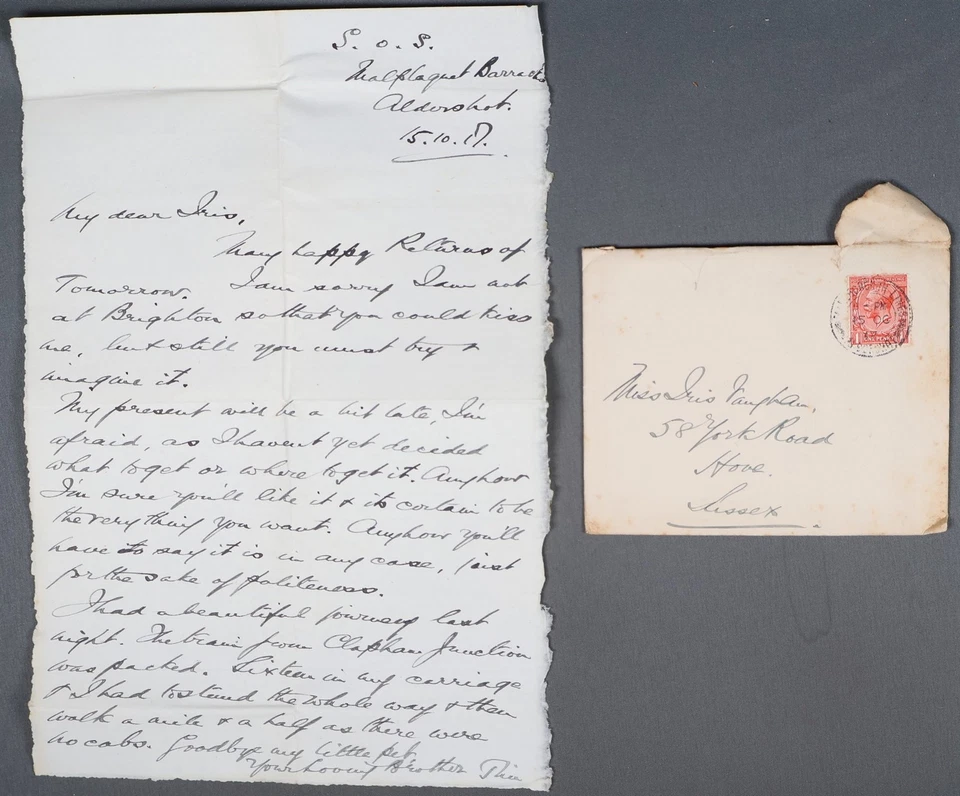 S. o. S.
Malplaquet Barracks
Aldershot.
15.10.17.
My dear Iris,
Many happy Returns of
Tomorrow. I am sorry I am not
at Brighton so that you could kiss
me, but still you must try &
imagine it.
My present will be a bit late, I'm
afraid, as I havent yet decided
what to get or where to get it. Anyhow
I'm sure you'll like it & its certain to be
the very thing you want. Anyhow you'll
have to say it is in any case, just
for the sake of politeness.
I had a beautiful journey last
night. The train from Clapham Junction
was packed. Sixteen in my carriage
& I had to stand the whole way & then
walk a mile & a half as there were
no cabs. Goodbye my little pet
Your loving Brother
Miss Iris Vaughan,
58 York Road
Hove.
Sussex